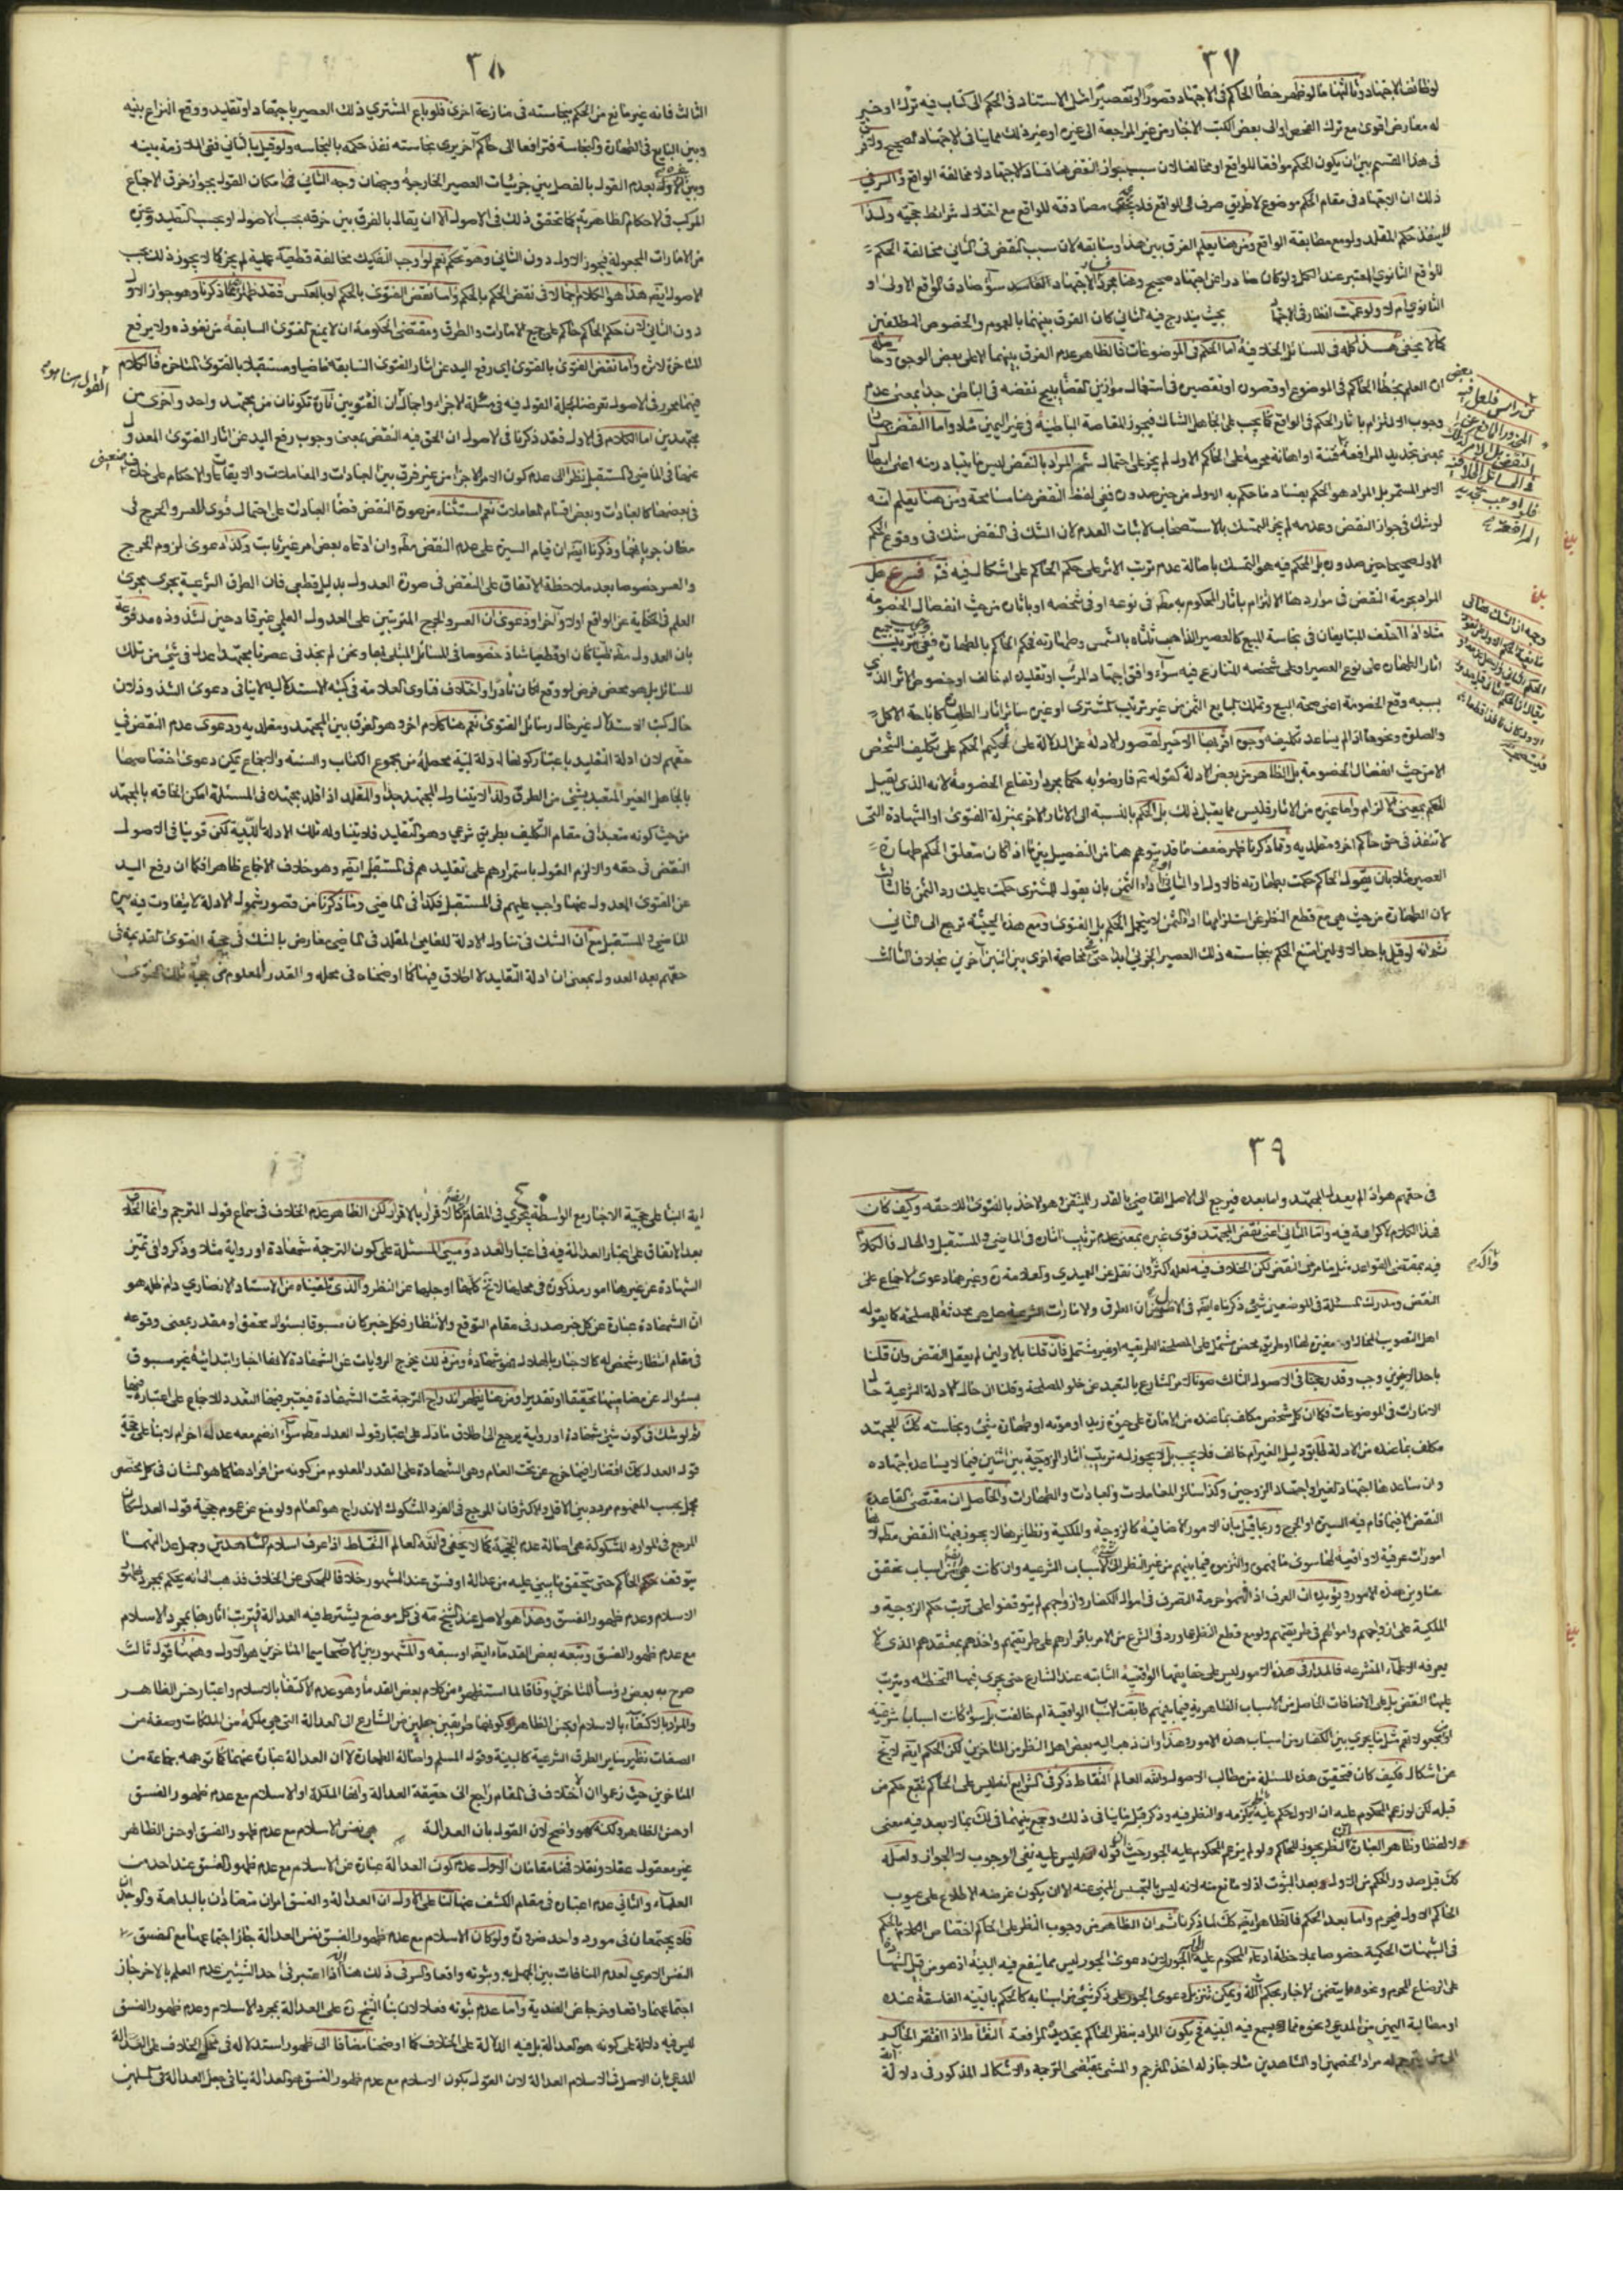 ٣٧
لوظائف الاجتهاد وثالثها ما لو ظهر خطأ الحاكم في الاجتهاد قصورا او تقصيرا مثل الاستناد في الحكم الى كتاب فيه ترك او خبر
له معارض اقوى مع ترك الفحص او الى بعض الكتب الاخبار من غير المراجعة الى غيره او غير ذلك مما ينافي الاجتهاد الصحيح
في هذا القسم بين ان يكون الحكم موافقا للواقع او مخالفا لان سبب جواز النقض هنا فساد الاجتهاد لا مخالفة الواقع والسر في
ذلك ان الاجتهاد في مقام الحكم موضوع لا طريق صرف الى الواقع فلا مصادفته للواقع مع اختلال شرائط حجيته ولذا
لا ينفذ حكم المقلد ولو مع مطابقة الواقع ومن هنا يعلم الفرق بين هذا وسابقه لان سبب النقض في الثاني مخالفة الحكم
للواقع الثانوي المعتبر عند الكل ولو كان صادرا عن اجتهاد صحيح وهنا مجرد الاجتهاد الفاسد سواء صادف الواقع الاولى او
الثانوي ام لا ولو عممت انظار في الاجتهاد بحيث يندرج فيه الثاني كان الفرق بينهما بالعموم والخصوص المطلقين
كما لا يخفى هذا كله في المسائل الخلافية اما الحكم في الموضوعات فالظاهر عدم الفرق بينهما الا على بعض الوجوه
ان العلم بخطأ الحاكم في الموضوع او قصوره او تقصيره في استعمال موازين القضاء يبيح نقضه في الباطن جدا بمعنى عدم
وجوب الالتزام بآثار الحكم في الواقع كما يجب على الجاهل الشاك فيجوز المقاصة الباطنية في غير اليمين مثلا واما النقض
بمعنى تجديد المرافعة فتنة او اهانة محرمة على الحاكم الاول لم يجز على احتمال ثم المراد بالنقض ليس ما يتبادر منه اعنى ابطال
الامر المستمر بل المراد هو الحكم بفساد ما حكم به الاول من حين صدوره ففى لفظ النقض هنا مسامحة ومن هنا يعلم انه
لو شك في جواز النقض وعدمه لم يجز التمسك بالاستصحاب لاثبات العدم لان الشك في النقض شك في وقوع الحكم
الاول صحيحا حين صدوره بل المحكم فيه هو التمسك باصالة عدم ترتب الاثر على حكم الحاكم على اشكال فيه فرع هل
المراد بحرمة النقض في مواردها الالتزام بآثار المحكوم به مطلقا في نوعه او في شخصه او بآثاره من حيث انفصال الخصومة
مثلا اذا اختلف المتبايعان في نجاسة المبيع كالعصير الذاهب ثلثاه بالشمس وطهارته فحكم الحاكم بالطهارة ففى ترتيب
آثار الطهارة على نوع العصير او على شخصه المتنازع فيه سواء وافق اجتهاد المرتب او تقليده ام خالف او خصوص الاثر الذي
بسببه وقع الخصومة اعنى صحة البيع وتملك البايع الثمن من غير ترتيب المشترى او غيره سائر آثار الطهارة كاباحة الاكل
والصلوة ونحوها اذا لم يساعد تكليفه وجوه اقربها الاخير لقصور الادلة عن الدلالة على تحكيم الحكم على تكليف الشخص
الا من حيث انفصال الخصومة بل الظاهر من بعض الادلة كقوله قد رضوا به حكما مجرد ارتفاع الخصومة لانه الذي يقبل
الحكم بمعنى الالزام واما غيره من الآثار فليس مما يقبل ذلك بل الحكم بالنسبة الى الآثار الاخر بمنزلة الفتوى او الشهادة التى
لا تنفذ في حق حاكم آخر ومقلديه ومما ذكرنا ظهر ضعف ما قد يتوهم هنا من التفصيل بين ما اذا كان متعلق الحكم طهارة
العصير مثلا بان يقول الحاكم حكمت بطهارته فالاول او الثانى او اداء الثمن بان يقول للمشترى حكمت عليك رد الثمن فالثالث
لان الطهارة من حيث هى مع قطع النظر عن استلزامها اداء الثمن لا يتحمل الحكم بل الفتوى ومع هذا الحيثية ترجع الى الثانى
ثم انه لو قيل باحد الاولين امتنع الحكم بنجاسته ذلك العصير الجزئى ابدا حتى في مخاصمة اخرى بين اثنين آخرين بخلاف الثالث
٣٨
الثالث فانه غير مانع من الحكم بنجاسته في منازعة اخرى فلو باع المشتري ذلك العصير باجتهاد او تقليد ووقع النزاع بينه
وبين البايع في الطهارة والنجاسة فترافعا الى حاكم آخر يرى نجاسته نفذ حكمه بالنجاسه ولو قيل بالثاني ففى الملازمة بينه
وبين الاول بعدم القول بالفصل بين جزئيات العصير الخارجية وجهان وجه الثاني امكان القول بجواز خرق الاجماع
المركب في الاحكام الظاهرية كما تحقق ذلك في الاصول الا ان يقال بالفرق بين خرقه بحسب الاصول او بحسب التقليد وغيره
من الامارات المجعولة فيجوز الاول دون الثانى وهو تحكم نعم لو اوجب التفكيك مخالفة قطعية عملية لم يجز كما لا يجوز ذلك بحسب
الاصول ايضا هذا هو الكلام اجمالا في نقض الحكم بالحكم واما نقض الفتوى بالحكم او بالعكس فقد ظهر مما ذكرنا وهو جواز الاول
دون الثاني لان حكم الحاكم حاكم على جميع الامارات والطرق ومقتضى الحكومة ان لا يمنع الفتوى السابقة من نفوذه ولا يرفع
المتأخرة لاثره واما نقض الفتوى بالفتوى اي رفع اليد عن آثار الفتوى السابقة ماضيا ومستقبلا بالفتوى المتأخرة فالكلام
فيهما محرر في الاصول تعرضنا لجملة القول فيه في مسئلة الاجزاء واجماله ان الفتويين تارة تكونان من مجتهد واحد واخرى من
مجتهدين اما الكلام في الاول فقد ذكرنا في الاصول ان الحق فيه النقض بمعنى وجوب رفع اليد عن آثار الفتوى المعدول
عنها في الماضى والمستقبل نظرا الى عدم كون الامر للاجزاء من غير فرق بين العبادات والمعاملات والايقاعات والاحكام
في بعضها كالعبادات وبعض اقسام المعاملات نعم استثناء من صورة النقض قضاء العبادات على احتمال قوى للعسر والحرج في
مظان جريانهما وذكرنا ايضا ان قيام السيرة على عدم النقض مطلقا وان ادعاه بعض امر غير ثابت وكذا دعوى لزوم الحرج
والعسر خصوصا بعد ملاحظة الاتفاق على النقض في صورة العدول بدليل قطعى فان الطرق الشرعية يجرى مجرى
العلم في الحكاية عن الواقع اولا وآخرا ودعوى ان العسر والحرج المترتبين على العدول العلمى غير قادحين لشذوذه مدفوعة
بان العدول مطلقا ظنيا كان او قطعيا شاذ خصوصا في المسائل المبتلى بها ونحن لم نجد في عصرنا مجتهدا عدل في شئ من تلك
المسائل بل هو محض فرض لو وقع لكان نادرا واختلاف فتاوى العلامة في كتبه الاستدلاليه لا ينافى دعوى الشذوذ لان
حال كتب الاستدلال غير حال رسائل الفتوى نعم هنا كلام آخر وهو الفرق بين المجتهد ومقلديه ودعوى عدم النقض في
حقهم لان ادلة التقليد باعتبار كونها ادلة لبية محصلة من مجموع الكتاب والسنة والاجماع يمكن دعوى اختصاصها
بالجاهل الغير المتعبد بشئ من الطرق ولذا لا يتناول المجتهد جدا والمقلد اذا قلد مجتهدا في المسئلة امكن الحاقه بالمجتهد
من حيث كونه متعبدا في مقام التكليف بطريق شرعى وهو التقليد فلا يتناوله تلك الادلة اللبية لكن قوينا في الاصول
النقض في حقه والا لزم القول باستمرارهم على تقليدهم في المستقبل ايضا وهو خلاف الاجماع ظاهرا فكما ان رفع اليد
عن الفتوى المعدول عنها واجب عليهم في المستقبل فكذا في الماضى وما ذكرنا من قصور شمول الادلة لا يتفاوت فيه بين
الماضى والمستقبل مع ان الشك في تناول الادلة للعامى المقلد في الماضى معارض بالشك في حجية الفتوى القديمة في
حقهم بعد العدول بمعنى ان ادلة التقليد لا اطلاق فيها كما اوضحناه في محله والقدر المعلوم من حجية تلك الفتوى
٣٩
في حقهم هو اذا لم يعدل المجتهد واما بعده فيرجع الى الاصل القاضى بالقدر المتيقن وهو الاخذ بالفتوى اللاحقه وكيف كان
فهذا الكلام لا كرامة فيه واما الثانى اعنى نقض المجتهد فتوى غيره بمعنى عدم ترتيب آثاره في الماضى والمستقبل والحال فالكلام
فيه بمقتضى القواعد مثل ما مر في النقض لكن الخلاف فيه لعله اكثر وان نقل عن العميدي والعلامة وغيرهما دعوى الاجماع على
النقض ومدرك المسئلة في الموضعين شئ ذكرناه ايضا في الاصول من ان الطرق والامارات الشرعية هل هى محدثة للمصلحة كما يقوله
اهل التصويب المحال او مغيرة لها او طريق محض مشتمل على المصلحة الطريقيه او غير مشتمل فان قلنا بالاولين لم يعقل النقض وان قلنا
باحد الاخيرين وجب وقد رجحنا في الاصول الثالث صونا لامر الشارع بالتعبد عن خلو المصلحة وقلنا ان حال الادلة الشرعية حال
الامارات في الموضوعات فكما ان كل شخص مكلف بما عنده من الامارة على حيوة زيد او موته او طهارة شئ ونجاسته كك المجتهد
مكلف بما عنده من الادلة طابق دليل الغير ام خالف فلا يجب بل لا يجوز له ترتيب آثار الزوجية بين اثنين فيما لا يساعده اجتهاده
وان ساعدها اجتهاد الغير او اجتهاد الزوجين وكذا سائر المعاملات والعبادات والطهارات والحاصل ان مقتضى القاعدة
النقض الا فيما قام فيه السيرة او الحرج وربما قيل بان الامور الاضافية كالزوجية والملكية ونظائرها لا يجوز فيها النقض مطلقا
امورات عرفية لا واقعية لها سوى بانهم والتزموه فيما بينهم من غير النظر الى الاسباب الشرعيه وان كانت هى من اسباب تحقق
عناوين هذه الامور ويؤيده ان العرف اذا فهموا حرمة التصرف في اموال الكفار وازواجهم لم يتوقفوا على ترتب حكم الزوجية و
الملكية على ازواجهم واموالهم في طريقتهم ولو مع قطع النظر عما ورد في الشرع من الامر باقرارهم على طريقتهم واخذهم بمعتقدهم الذى لا
يعرفه الا علماء المتشرعه فالمدار في هذه الامور ليس على حقايقها الواقعية الثابته عند الشارع حتى يجرى فيها التخطئه ويترتب
عليها النقض بل على الاضافات الحاصل من الاسباب الظاهرية فيما بينهم طابقت الاسباب الواقعية ام خالفت بل سواء كانت اسبابا شرعية
او مجعولاتهم مثل ما يجرى بين الكفار من اسباب هذه الامور وهذا وان ذهب اليه بعض اهل النظر من المتاخرين لكن الحكم ايضا لا يخ
عن اشكال فكيف كان فتحقيق هذه المسئلة من مطالب الاصول والله العالم التقاط ذكر في الشرايع انه ليس على الحاكم تتبع حكم من
قبله لكن لو زعم المحكوم عليه ان الاول حكم عليه بالجور لزمه والنظر فيه وذكر قبل ما ينافى ذلك وجمع بينهما في لك بما لا بعد فيه معنى
ولا لفظا وظاهر العبارة ان النظر يجوز للحاكم ولو لم يزعم المحكوم عليه الجور حيث ان قوله ليس عليه نفى الوجوب لا الجواز ولعله
كك قبل صدور الحكم من الاول وبعد الثبوت اذ لا مانع منه لانه ليس بالتجسس المنهى عنه الا ان يكون غرضه الاطلاع على عيوب
الحاكم الاول فيحرم واما بعد الحكم فالظاهر ايضا كك لما ذكرنا ثم ان الظاهر من وجوب النظر على الحاكم اختصاص الكلام بالحكم
في الشبهات الحكمية خصوصا بملاحظة ادعاء المحكوم عليه الجور لان دعوى الجور ليس مما ينفع فيه البينة اذ هو من قبيل الشهادة
على ارضاع المحرم ونحوها مما يتضمن الاخبار بحكم الله ويمكن تنزيل دعوى الجور على ذكر شئ من اسبابه كالحكم بالبينة الفاسقة عنده
او مطالبة اليمين من المدعى ونحوه مما يسمع فيه البينة فيكون المراد بنظر الحاكم تجديد المرافعة التقاط اذا افتقر الحاكم
الى من يترجم له مراد الخصمين او الشاهدين مثلا جاز له اخذ المترجم والمشى بمقتضى الترجمة والاشكال المذكور في دلالة
٤٠
اية النبأ على حجية الاخبار مع الواسطة يجري في المقام لكن الظاهر عدم الخلاف في سماع قول المترجم وانما الخلاف
بعد الاتفاق على اعتبار العدالة فيه في اعتبار العدد ومبنى المسئلة على كون الترجمة شهادة او رواية مثلا وذكروا في تميز
الشهادة عن غيرها امور مذكورة في محلها لا تخ كلها او جلها عن النظر والذى تلقيناه من الاستاد الانصاري دام ظله هو
ان الشهادة عبارة عن كل خبر صدر في مقام التوقع والانتظار فكل خبر كان مسبوقا بسئوال محقق او مقدر بمعنى وقوعه
في مقام انتظار شخص له كالاخبار بالهلال فهو شهادة ومن ذلك يخرج الروايات عن الشهادة لانها اخبار ابتدائية غير مسبوق
بسئوال عن مضامينها تحقيقا او تقديرا ومن هنا يظهر اندراج الترجمة تحت الشهادة فيعتبر فيها التعدد للاجماع على اعتباره فيها
ثم لو شك في كون شئ شهادة او رواية يرجع الى اطلاق ما دل على اعتبار قول العدل مطلقا سواء انضم معه عدالة اخرى ام لا بناء على حجية
قول العدل كك اقتصارا فيما خرج عن تحت العام وهى الشهادة على القدر المعلوم من كونه من افرادها كما هو الشأن في كل مخصص
مجمل بحسب المفهوم مردد بين الاقل والاكثر فان المرجع في الفرد المشكوك الاندراج هو العام ولو منع عن عموم حجية قول العدل كان
المرجع في الموارد المشكوكة هى اصالة عدم الحجية كما لا يخفى والله العالم التقاط اذا عرف اسلام الشاهدين وجهل عدالتهما
يتوقف الحاكم حتى يتحقق ما يبنى عليه من عدالة او فسق عند المشهور خلافا للمحكى عن الخلاف فذهب الى انه يحكم بمجرد ظهور
الاسلام وعدم ظهور الفسق وهذا هو الاصل عند الشيخ ره في كل موضع يشترط فيه العدالة فيترتب آثارها بمجرد الاسلام
مع عدم ظهور الفسق وتبعه بعض القدماء ايضا او سبقه والمشهور بين الاصحاب سيما المتاخرين هو الاول وهنا قول ثالث
صرح به بعض رؤساء المتاخرين وفاقا لما استظهره من كلام بعض القدماء وهو عدم الاكتفاء بالاسلام واعتبار حسن الظاهر
والمراد بالاكتفاء بالاسلام او بحسن الظاهر كونهما طريقين جعليين من الشارع الى العدالة التى هى ملكة من الملكات وصفة من
الصفات نظير ساير الطرق الشرعية كالبينة وقول المسلم واصالة الطهارة لا ان العدالة عبارة عنهما كما توهمه جماعة من
المتاخرين حيث زعموا ان الاختلاف في المقام راجع الى حقيقة العدالة وانها الملكة او الاسلام مع عدم ظهور الفسق
او حسن الظاهر ولكنه كما هو واضح لان القول بان العدالة هى نفس الاسلام مع عدم ظهور الفسق او حسن الظاهر
غير معقول عقلا ونقلا فهنا مقامان الاول عدم كون العدالة عبارة عن الاسلام مع عدم ظهور الفسق عند احد من
العلماء والثانى عدم اعتباره في مقام الكشف عنها لنا على الاول ان العدالة والفسق امران متضادان بالبداهة
فلا يجتمعان في مورد واحد ضرورة ولو كان الاسلام مع عدم ظهور الفسق نفس العدالة جاز اجتماعهما مع الفسق
النفس الامري لعدم المنافات بين الجهل به وثبوته واقعا والسر في ذلك هنا انه اذا اعتبر في احد الشيئين عدم العلم بالآخر جاز
اجتماعهما واقعا وخرجا عن الضدية واما عدم ثبوته فعلا لان بناء الشيخ ره على العدالة بمجرد الاسلام وعدم ظهور الفسق
ليس فيه دلالة على كونه هو العدالة بل فيه الدلالة على الخلاف كما اوضحنا مضافا الى ظهور استدلاله في محكى الخلاف على العدالة
المدعى بان الاصل في الاسلام العدالة لان القول بكون الاسلام مع عدم ظهور الفسق هو العدالة ينافى جعل العدالة في المسلمين